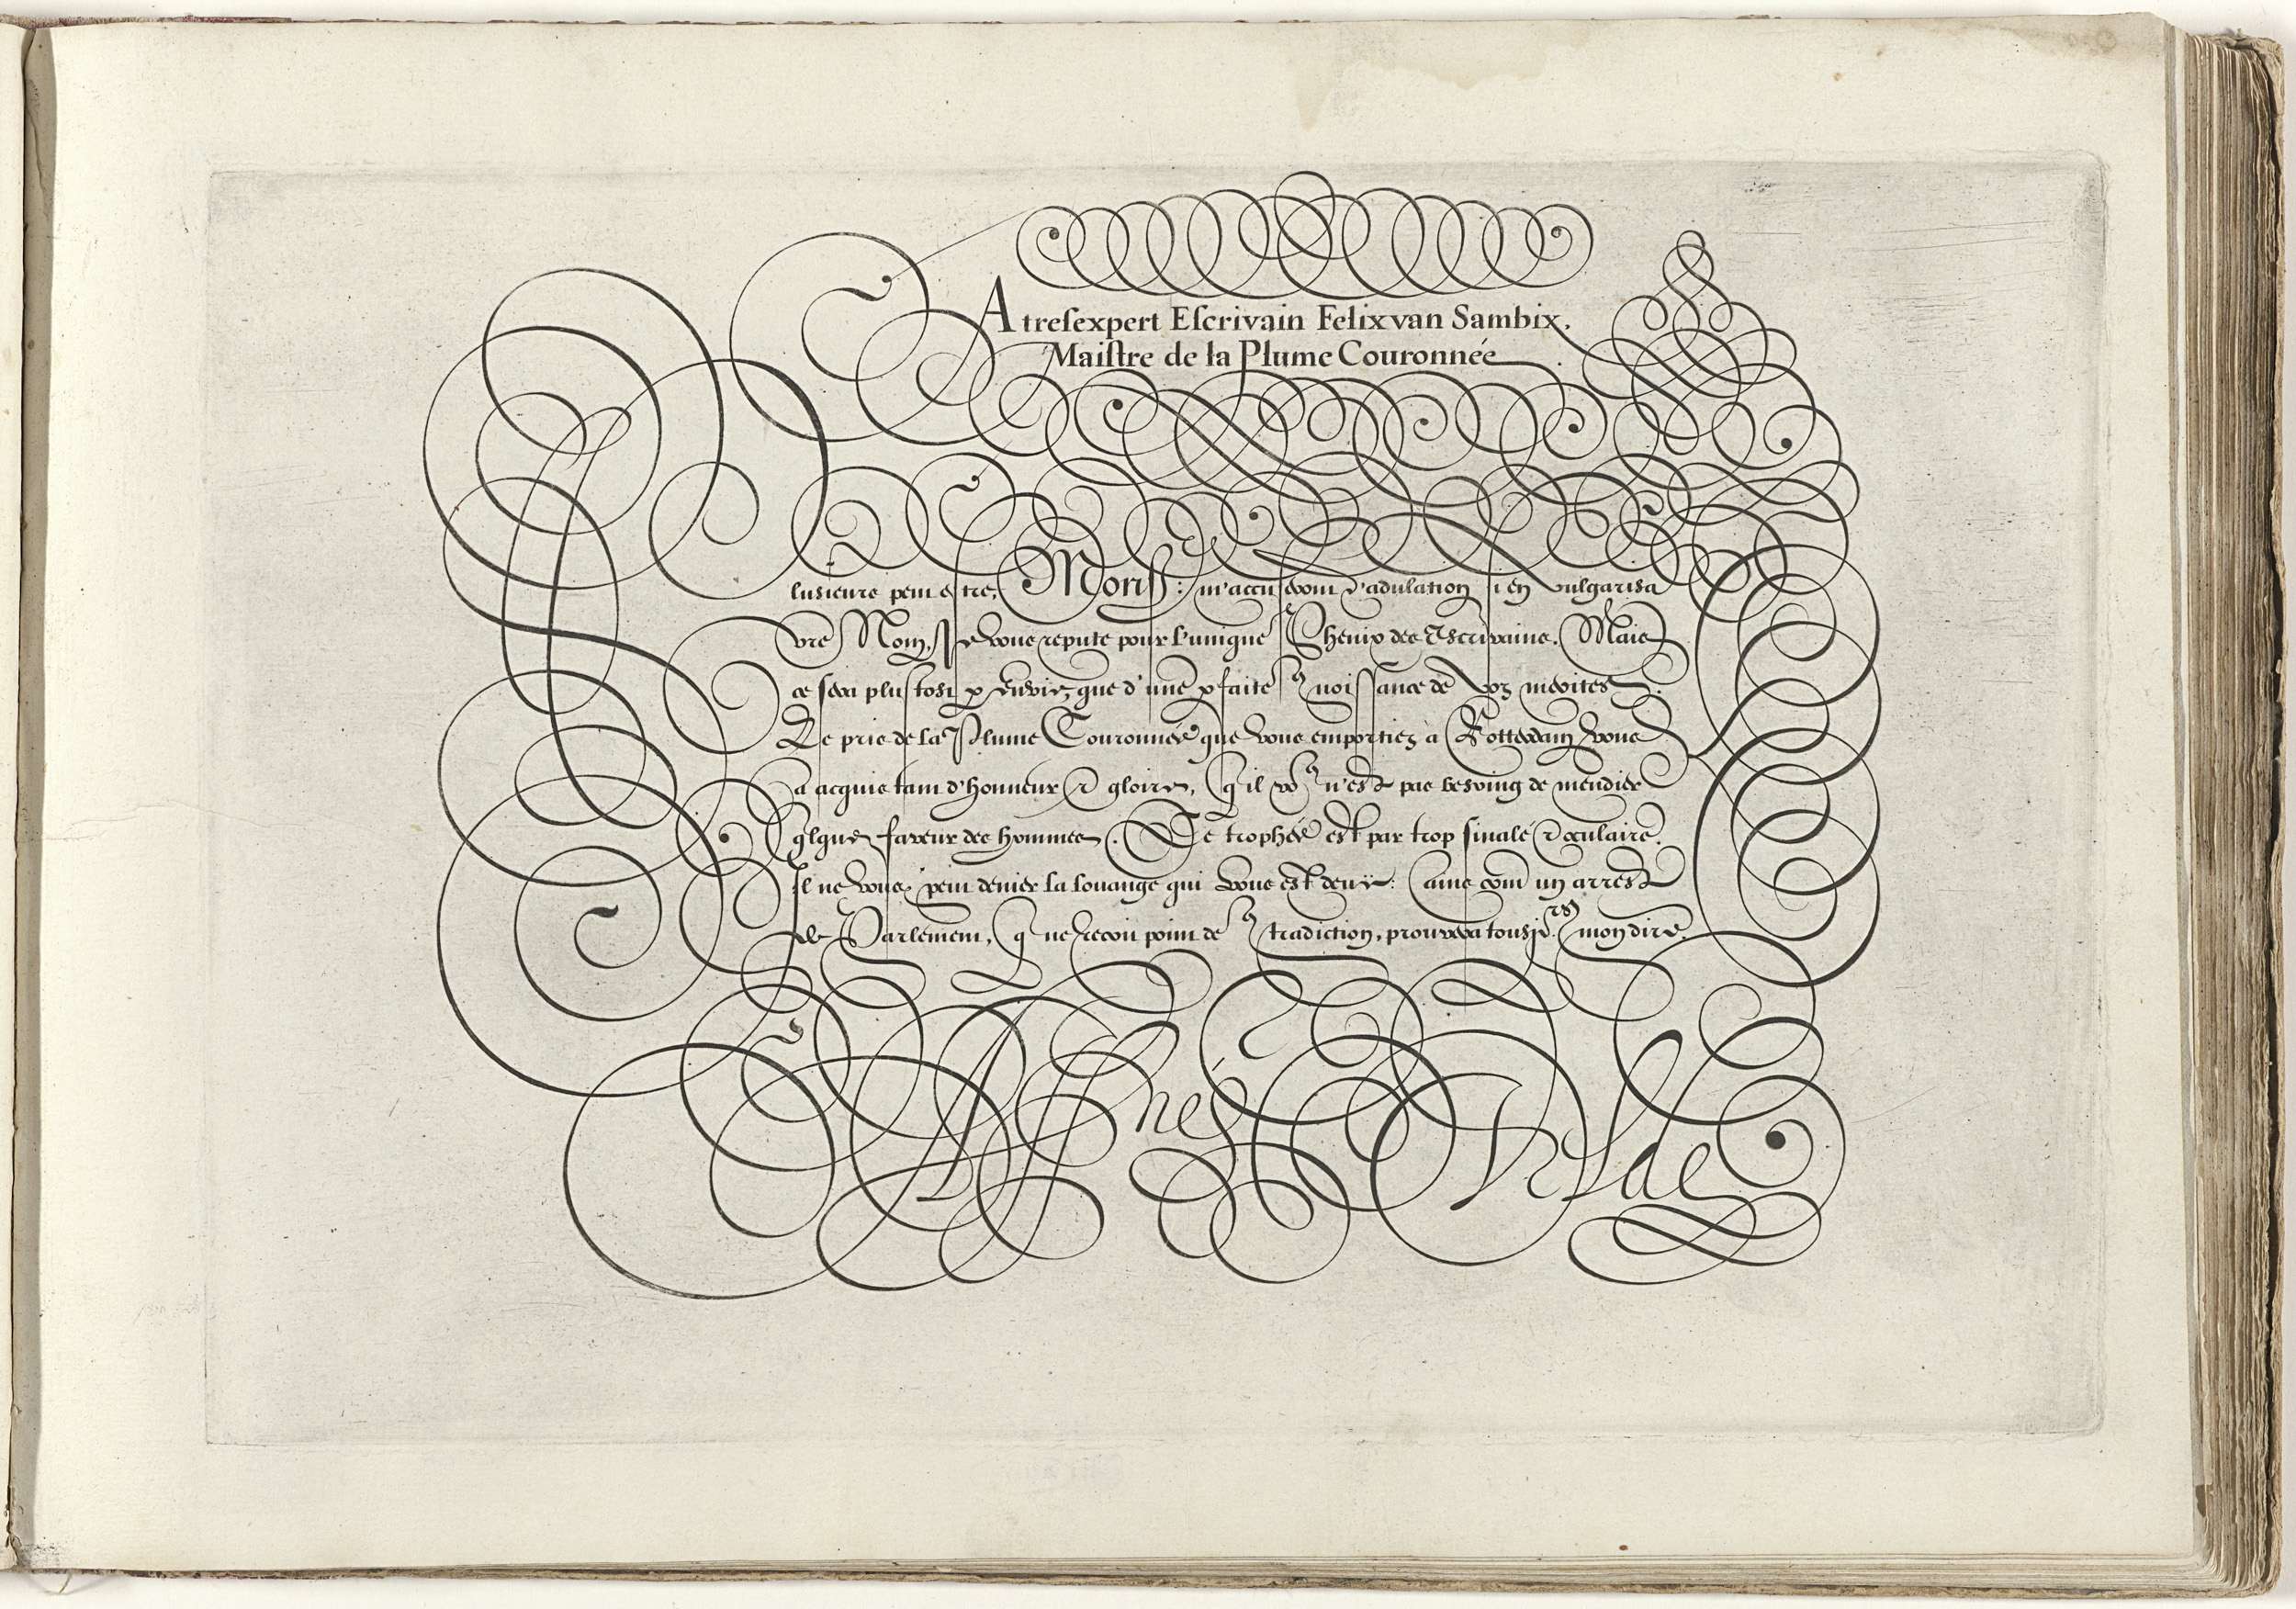 A tresexpert Escrivain Felix van Sambix,
Maistre de la Plume Couronnée
Plusieurs peut estre, Mons.r: m'accuseront d'adulation si en vulgarisant
vre Nom, Je vous repute pour l'unique Phenix des Escrivains. Mais
ce sera plustost p envie, que d'une pfaite 9noissance de voz merites.
Le pris de la Plume Couronnée que vous emportiez à Rotterdam, vous
a acquis tant d'honneur & gloire, q'il vo9 n'est pas besoing de mendier
qlque faveur des hommes. Ce trophée est par trop sinalé & oculaire.
Il ne vous peut denier la louange qui vous est deuë: ains com̄ un arrest
de Parlement, q ne recoit point de 9tradiction, prouvera tousjrs mon dire.